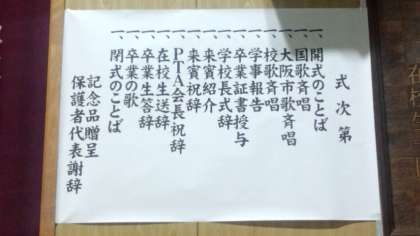 式次第
一、開式のことば
一、国歌斉唱
一、大阪市歌斉唱
一、校歌斉唱
一、学事報告
一、卒業証書授与
一、学校長式辞
一、来賓紹介
一、来賓祝辞
一、PTA会長祝辞
一、在校生送辞
一、卒業生答辞
一、卒業の歌
一、閉式のことば
記念品贈呈
保護者代表謝辞